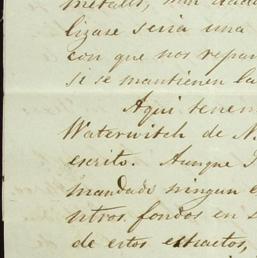 lizase seria una
con que nos repar
si se mantienen la
Aqui tenem
Waterwitch de N.
escrito. Aunque
mandado ningun e
ntros fondos en s
de estos extractos,